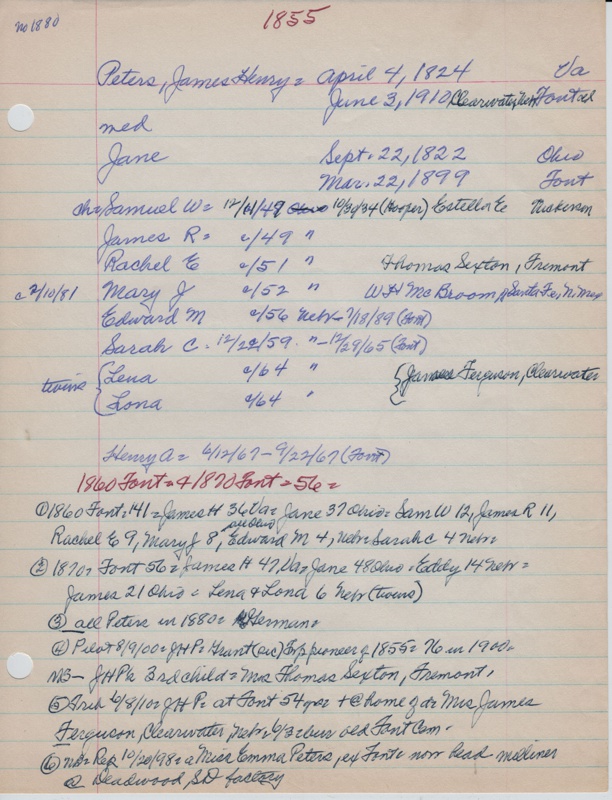 no 1880
1855
Peters, James Henry = April 4, 1824 Va
June 3, 1910 Clearwater, Nebr Font old
med
Jane Sept. 22, 1822 Ohio
Mar. 22, 1899 Font
ch= Samuel W= 10/30/34 (Hooper) Estella E
James R= c/49 "
Rachel E c/51 " Thomas Sexton, Fremont
c 2/10/81 Mary J c/52 " WH McBroom, of Santa Fe, N. Mex
Edward M c/56 Nebr - 7/18/89 (Font)
Sarah C. 12/22/59. " - 12/29/65 (Font)
twins { Lena c/64 " { James Ferguson, Clearwater
{ Lona c/64 " {
Henry A = 6/12/67 - 9/22/67 (Font)
1860 Font = + 1870 Font = 56 =
① 1860 Font, 141 = James H 36 Va = Jane 37 Ohio = Sam W 12, James R 11,
all Ohio
Rachel E 9, Mary J 8, Edward M 4, Nebr Sarah C 4 Nebr =
② 1870= Font 56 = James H 47, Va = Jane 48 Ohio = Eddy 14 Nebr =
James 21 Ohio = Lena & Lona 6 Nebr (twins)
③ all Peters in 1880 = German =
④ Pilot 8/9/00 = JHP = Grant (sic) Exp pioneer of 1855 = 76 in 1900 =
NB - JHP's 3rd child = Mrs Thomas Sexton, Fremont.
⑤ Trib 6/8/10 = JHP = at Font 54 yrs = + @ home of d= Mrs James
Ferguson, Clearwater, Nebr, 6/3 = bur old Font Cem.
⑥ NB= Rep 10/20/98 = a Miss Emma Peters, ex Font = now head milliner
@ Deadwood, SD factory